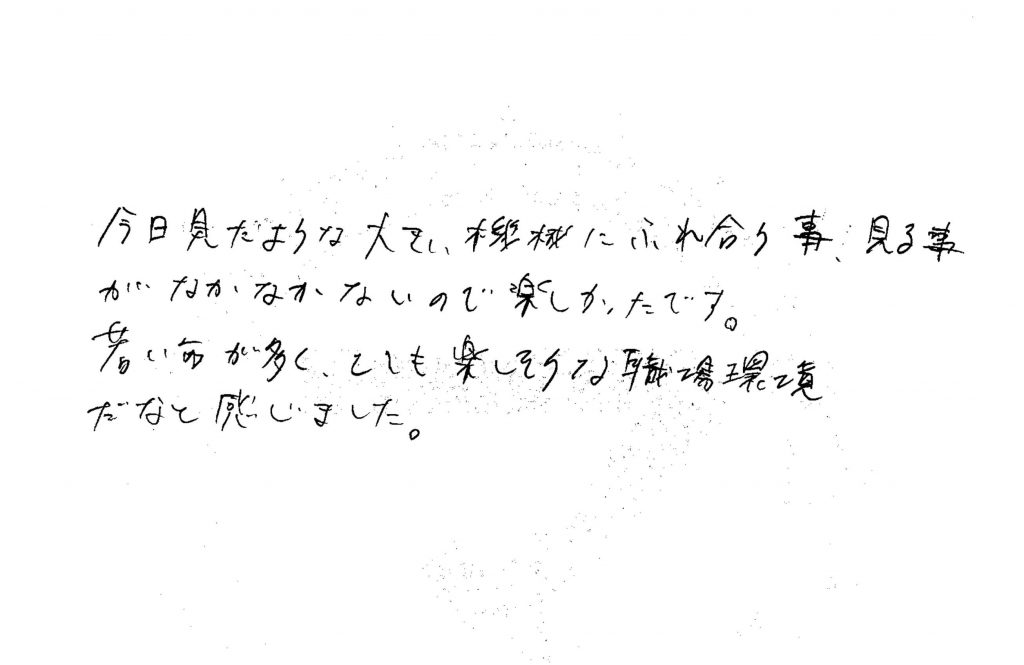 今日見たような大きい機械にふれ合う事、見る事
がなかなかないので楽しかったです。
若い方が多く、とても楽しそうな職場環境
だなと感じました。